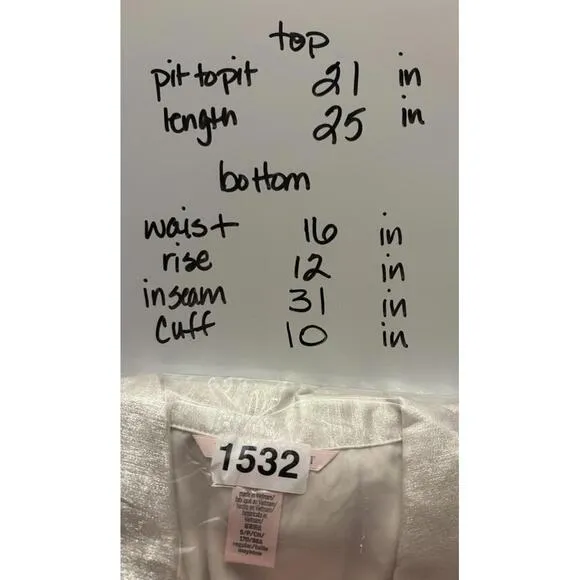 top
pit to pit 21 in
length 25 in
bottom
waist 16 in
rise 12 in
inseam 31 in
cuff 10 in
1532
made in Vietnam/
S/P/CH/
regular/